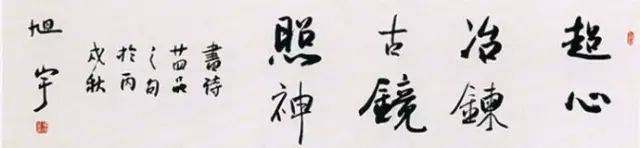 超心
冶鍊
古鏡
照神
書詩
廿四品
之句
於丙
戌秋
旭宇